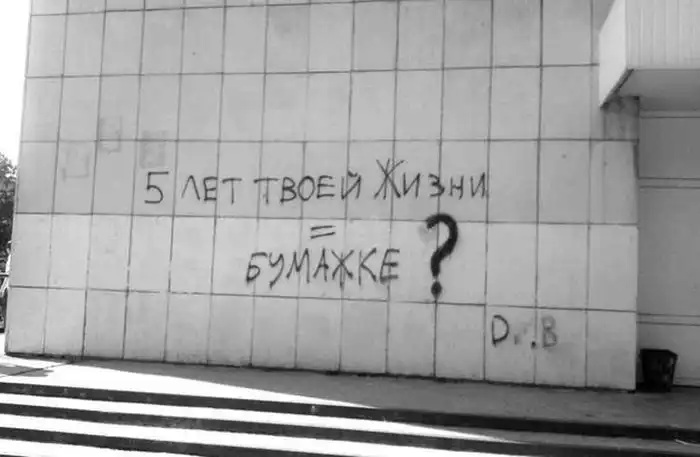 5 ЛЕТ ТВОЕЙ ЖИЗНИ
=
БУМАЖКЕ ?